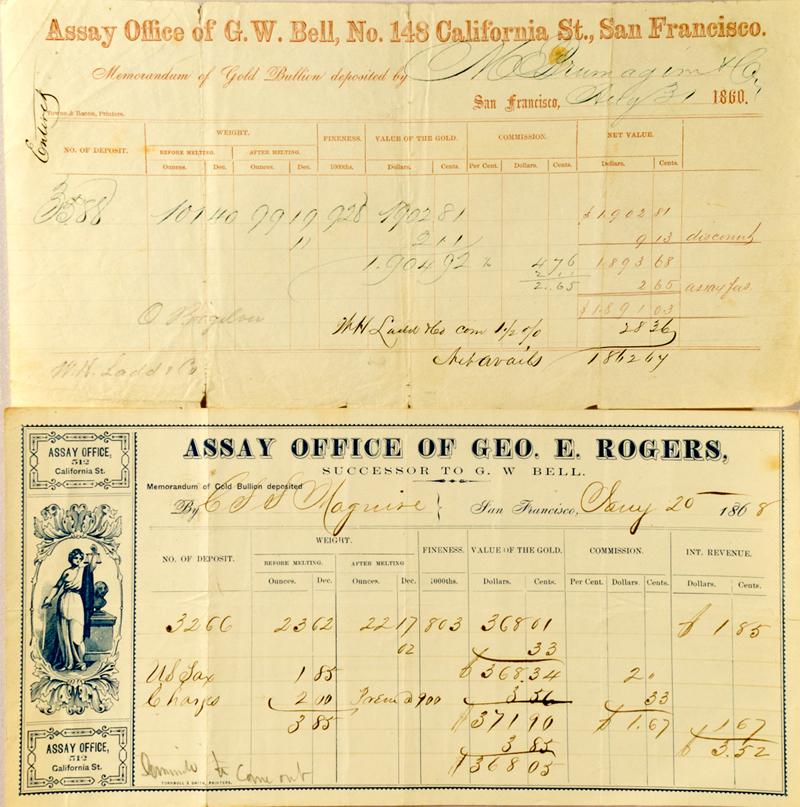 Assay Office of G. W. Bell, No. 148 California St., San Francisco.
Memorandum of Gold Bullion deposited by & Co
San Francisco, 31 1860.
Towne & Bacon, Printers.
Entered
NO. OF DEPOSIT. WEIGHT. FINENESS. VALUE OF THE GOLD. COMMISSION. NET VALUE.
BEFORE MELTING. AFTER MELTING.
Ounces. Dec. Ounces. Dec. 1000ths. Dollars. Cents. Per Cent. Dollars. Cents. Dollars. Cents.
3588 101 40 99 19 928 1902 81 $1902 81
11 2 11 9 13 discount
1.904 92 4 76 1893 68
2.65 2 65 assay
$1891 03
W.H. Ladd & Co com 1 1/2 % 28 36
Net avails 1862 67
W.H. Ladd & Co
ASSAY OFFICE,
512
California St.
ASSAY OFFICE OF GEO. E. ROGERS,
SUCCESSOR TO G. W BELL.
Memorandum of Gold Bullion deposited
By Maguire San Francisco, Jany 20 1868
NO. OF DEPOSIT. WEIGHT. FINENESS. VALUE OF THE GOLD. COMMISSION. INT. REVENUE.
BEFORE MELTING. AFTER MELTING.
Ounces. Dec. Ounces. Dec. 1000ths. Dollars. Cents. Per Cent. Dollars. Cents. Dollars. Cents.
3266 23 62 22 17 803 368 01 $ 1 85
02 33
US Tax 1 85 $368.34 2
Charges 2 00 Prem 900 3 56 33
3 85 $371 90 $1.67 1 67
3 85 $ 3.52
$368 05
ASSAY OFFICE,
512
California St.
to Come out
TURNBULL & SMITH, PRINTERS.